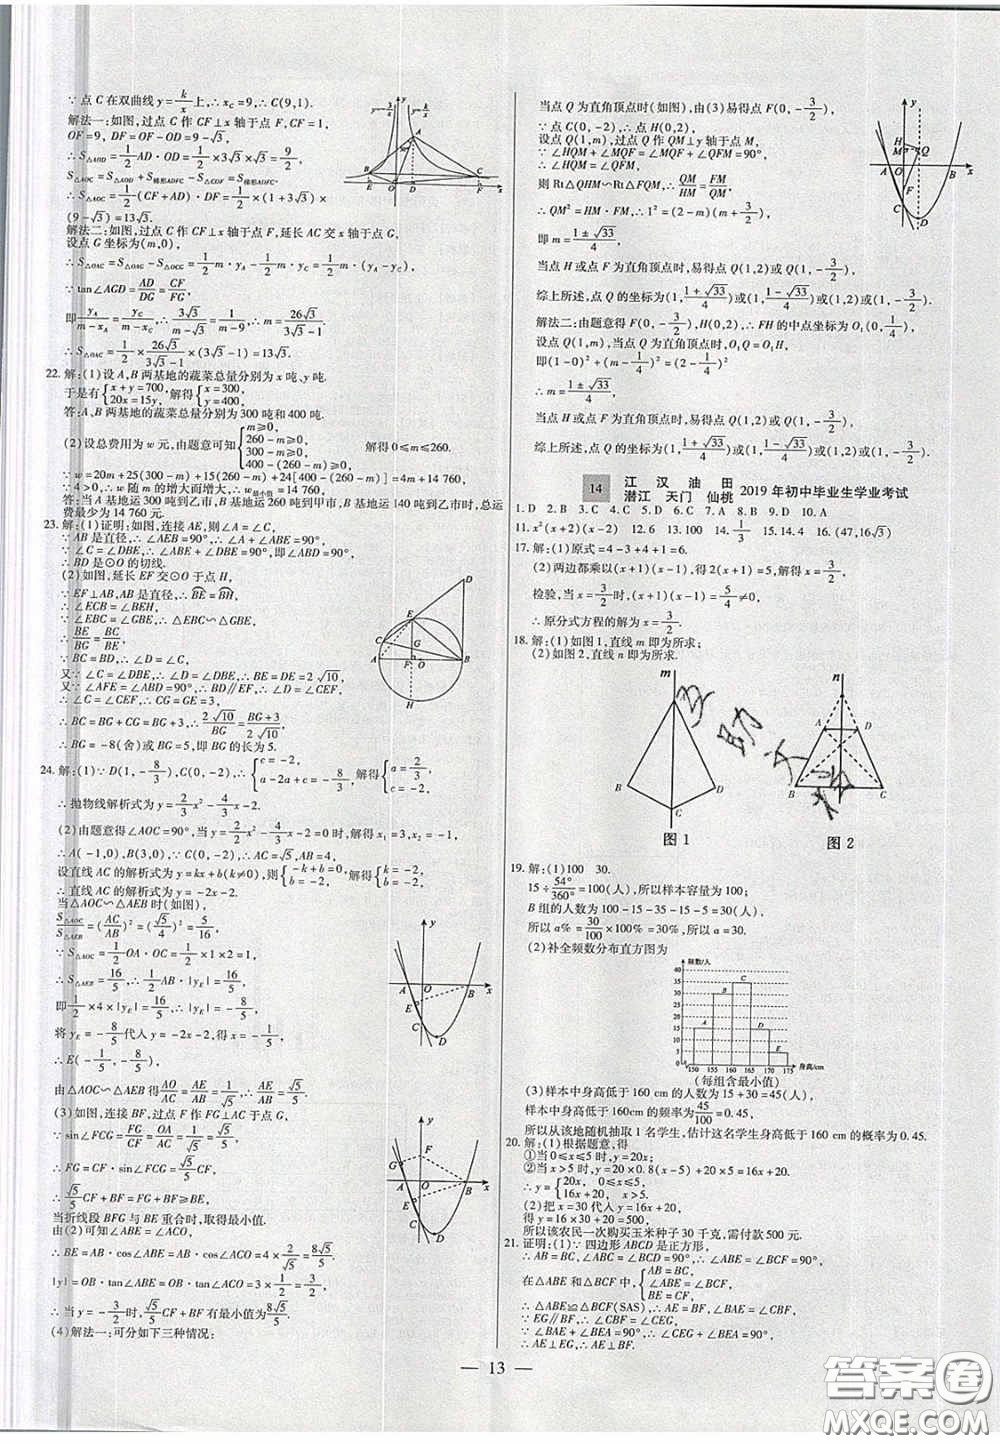 ∵点C在双曲线y=k/x上,∴x_C=9,∴C(9,1).
解法一:如图,过点C作CF⊥x轴于点F,CF=1,
OF=9,DF=OF-OD=9-√3,
∴S△AOD=1/2 AD·OD=1/2×3√3×√3=9/2
S△AOC=S△AOD+S梯形ADFC-S△COF=S梯形ADFC
∴S△AOC=1/2(CF+AD)·DF=1/2×(1+3√3)×
(9-√3)=13√3.
解法二:如图,过点C作CF⊥x轴于点F,延长AC交x轴于点G,
设点G坐标为(m,0),
∴S△OAC=S△OAG-S△OCG=1/2 m·y_A-1/2 m·y_C=1/2 m(y_A-y_C)
∵tan∠AGD=AD/DG=CF/FG,
即y_A/(m-x_A)=y_C/(m-x_C),∴3√3/(m-√3)=1/(m-9),∴m=26√3/(3√3-1)
∴S△OAC=1/2×26√3/(3√3-1)×(3√3-1)=13√3.
22.解:(1)设A,B两基地的蔬菜总量分别为x吨、y吨.
于是有{x+y=700, 20x=15y, 解得{x=300, y=400.
答:A,B两基地的蔬菜总量分别为300吨和400吨.
(2)设总费用为w元,由题意可知{m≥0, 260-m≥0, 300-m≥0, 400-(260-m)≥0. 解得0≤m≤260.
∵w=20m+25(300-m)+15(260-m)+24[400-(260-m)]=4m+14 760.
∵4>0,∴w随m的增大而增大,∴w最小值=14 760.
答:A基地运300吨到乙市,B基地运260吨到甲市,B基地运140吨到乙市时,总运
费最少为14 760元.
23.解:(1)证明:如图,连接AE,则∠A=∠C,
∵AB是直径,∴∠AEB=90°,∴∠A+∠ABE=90°.
∵∠C=∠DBE,∴∠ABE+∠DBE=90°,即∠ABD=90°,
∴BD是⊙O的切线.
(2)如图,延长EF交⊙O于点H,
∵EF⊥AB,AB是直径,∴BE=BH,
∴∠ECB=∠BEH,
∵∠EBC=∠GBE,∴△EBC∽△GBE,
∴BE/BG=BC/BE
∵BC=BD,∴∠D=∠C,
又∵∠C=∠DBE,∴∠D=∠DBE,∴BE=DE=2√10
又∵∠AFE=∠ABD=90°,∴BD∥EF,∴∠D=∠CEF,
∴∠C=∠CEG,∴CG=GE=3,
∴BC=BG+CG=BG+3,∴2√10/BG=(BG+3)/2√10
∴BG=-8(舍)或BG=5,即BG的长为5.
24.解:(1)∵D(1,-8/3),C(0,-2),∴{c=-2, a-2a+c=-8/3, 解得{a=2/3, c=-2.
∴抛物线解析式为y=2/3x²-4/3x-2.
(2)由题意得∠AOC=90°,当y=2/3x²-4/3x-2=0时,解得x₁=3,x₂=-1,
∴A(-1,0),B(3,0),∵C(0,-2),∴AC=√5,AB=4.
设直线AC的解析式为y=kx+b(k≠0),则{-k+b=0, b=-2, 解得{k=-2, b=-2.
∴直线AC的解析式为y=-2x-2.
当△AOC∽△AEB时(如图),
S△AOC/S△AEB=(AC/AB)²=(√5/4)²=5/16,
∵S△AOC=1/2 OA·OC=1/2×1×2=1
∴S△AEB=16/5,∴1/2 AB·|y_E|=16/5
即1/2×4×|y_E|=16/5,∴y_E=-8/5.
将y_E=-8/5代人y=-2x-2,得x=-1/5,
∴E(-1/5,-8/5).
由△AOC∽△AEB得AO/AC=AE/AB=1/√5,∴AE/AB=√5/5.
(3)如图,连接BF,过点F作FG⊥AC于点G,
∵sin∠FCG=FG/CF=OA/AC=1/√5=√5/5
∴FG=CF·sin∠FCG=√5/5 CF,
∴√5/5 CF+BF=FG+BF≥BE,
当折线段BFG与BE重合时,取得最小值.
由(2)可知∠ABE=∠ACO,
∴BE=AB·cos∠ABE=AB·cos∠ACO=4×2/√5=8√5/5
|y|=OB·tan∠ABE=OB·tan∠ACO=3×1/2=3/2,
∴当y=-3/2时,√5/5 CF+BF有最小值为8√5/5.
(4)解法一:可分如下三种情况:
当点Q为直角顶点时(如图),由(3)易得点F(0,-3/2),
∵点C(0,-2),∴点H(0,2),
设点Q(1,m),过点Q作QM⊥y轴于点M,
∵∠HQM+∠MQF=∠MQF+∠QFM=90°,
∴∠HQM=∠QFM,∵∠HMQ=∠QMF=90°,
则Rt△QHM∽Rt△FQM,∴QM/HM=FM/QM
∴QM²=HM·FM,∴1²=(2-m)(m+3/2),
即m=(1±√33)/4.
当点H或点F为直角顶点时,易得点Q(1,2)或Q(1,-3/2).
综上所述,点Q的坐标为(1,(1+√33)/4)或(1,(1-√33)/4)或(1,2)或(1,-3/2).
解法二:由题意得F(0,-3/2),H(0,2),∴FH的中点坐标为O₁(0,1/4),
设点Q(1,m),当点Q为直角顶点时,O₁Q=O₁H,
即(1-0)²+(m-1/4)²=(2-1/4)²
∴m=(1±√33)/4
当点H或点F为直角顶点时,易得点Q(1,2)或点Q(1,-3/2).
综上所述,点Q的坐标为(1,(1+√33)/4)或(1,(1-√33)/4)或(1,2)或(1,-3/2).
14 江汉油田 潜江 天门 仙桃 2019年初中毕业生学业考试
1.D 2.B 3.C 4.C 5.C 6.C 7.A 8.B 9.D 10.A
11.x²(x+2)(x-2) 12.6 13.100 14.1/3 15.14.4 16.(47,16√3)
17.解:(1)原式=4-3+4+1=6.
(2)两边都乘以(x+1)(x-1),得2(x-1)=5,解得x=3/2
检验,当x=3/2时,(x+1)(x-1)=5/4≠0,
∴原分式方程的解为x=3/2.
18.解:(1)如图1,直线m即为所求;
(2)如图2,直线n即为所求.
图1
图2
19.解:(1)100 30.
15÷54°/360°=100(人),所以样本容量为100;
B组的人数为100-15-35-15-5=30(人),
所以a%=30/100×100%=30%,所以a=30.
(2)补全频数分布直方图为
频数/人
40
35
30
25
20
15
10
5
0
A B C D E
150 155 160 165 170 175 身高/cm
(每组含最小值)
(3)样本中身高低于160 cm的人数为15+30=45(人),
样本中身高低于160cm的频率为45/100=0.45,
所以从该地随机抽取1名学生,估计这名学生身高低于160 cm的概率为0.45.
20.解:(1)根据题意,得
①当0≤x≤5时,y=20x;
②当x>5时,y=20×0.8(x-5)+20×5=16x+20,
∴y={20x, 0≤x≤5, 16x+20, x>5.
(2)把x=30代人y=16x+20,
得y=16×30+20=500.
所以该农民一次购买玉米种子30千克,需付款500元.
21.证明:(1)∵四边形ABCD是正方形,
∴AB=BC,∠ABC=∠BCD=90°,∴∠ABE=∠BCF=90°,
在△ABE和△BCF中,{AB=BC, ∠ABE=∠BCF, BE=CF,
∴△ABE≌△BCF(SAS),∴AE=BF,∠BAE=∠CBF,
∵EG∥BF,∴∠CBF=∠CEG,
∵∠BAE+∠BEA=90°,∴∠CEG+∠BEA=90°,
∴AE⊥EG,∴AE⊥BF.
— 13 —
答案圈
MXQE.COM